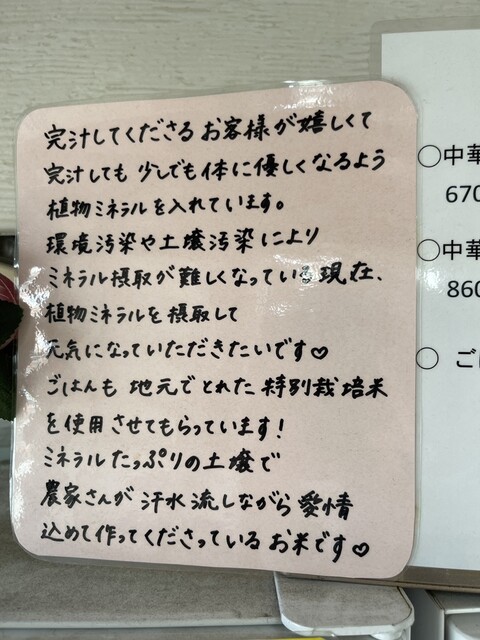 完汁してくださるお客様が嬉しくて
完汁しても少しでも体に優しくなるよう
植物ミネラルを入れています。
環境汚染や土壌汚染により
ミネラル摂取が難しくなっている現在、
植物ミネラルを摂取して
元気になっていただきたいです♡
ごはんも地元でとれた特別栽培米
を使用させてもらっています!
ミネラルたっぷりの土壌で
農家さんが汗水流しながら愛情
込めて作ってくださっているお米です♡
○中華
670
○中華
860
○ ごは